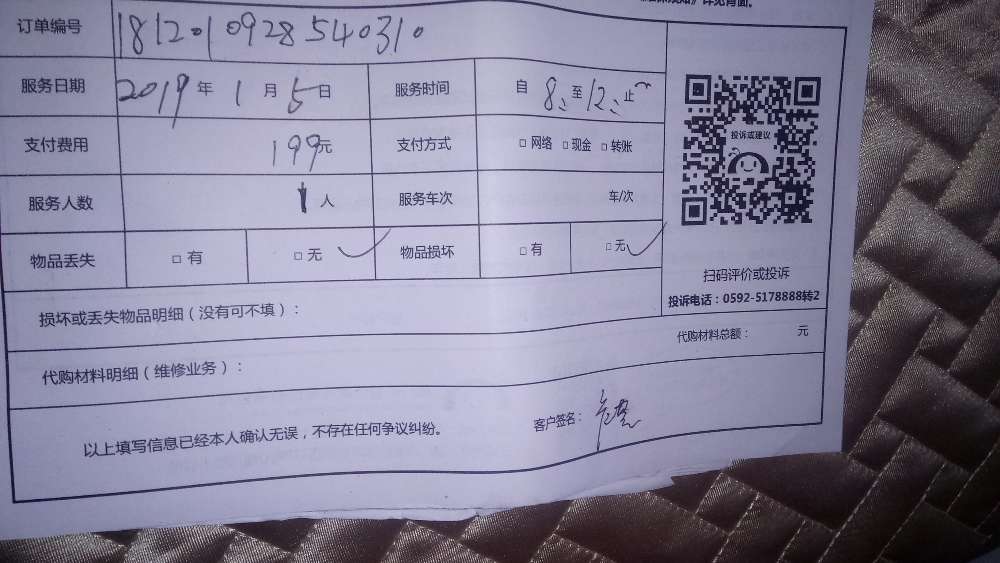 详见背面。
订单编号 1812010928540310
服务日期 2019年1月5日 服务时间 自8:至12:止
支付费用 199元 支付方式 □网络 □现金 □转账
投诉或建议
服务人数 1人 服务车次 车/次
物品丢失 □有 □无 ✓ 物品损坏 □有 □无 ✓
扫码评价或投诉
投诉电话：0592-5178888转2
损坏或丢失物品明细（没有可不填）：
代购材料总额： 元
代购材料明细（维修业务）：
以上填写信息已经本人确认无误，不存在任何争议纠纷。
客户签名：